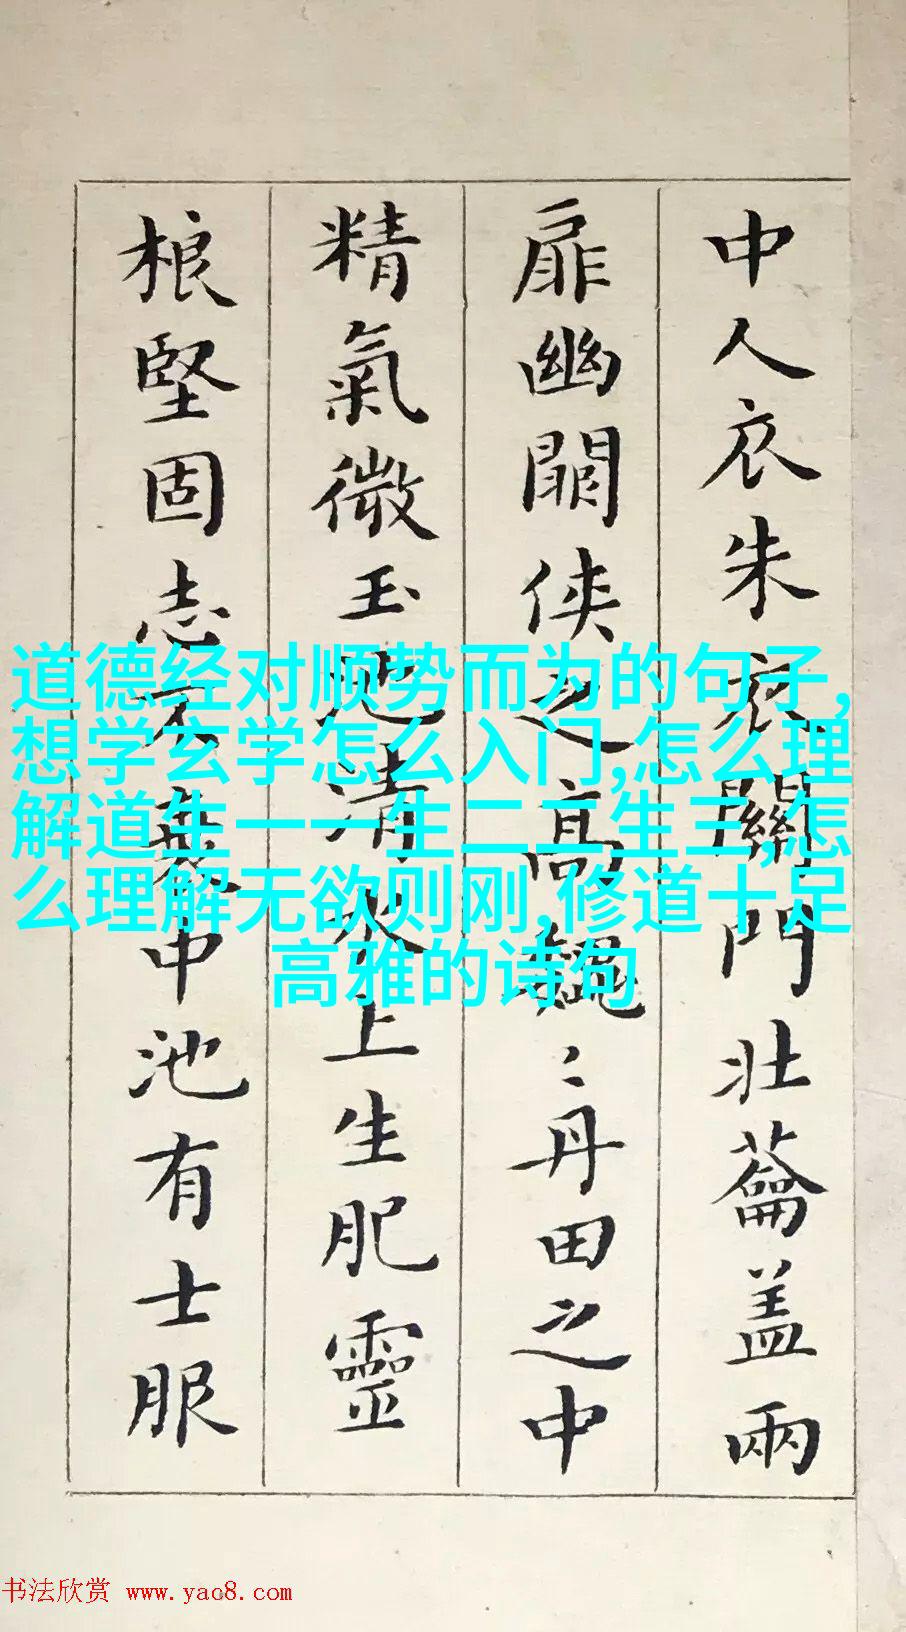 中人衣朱衣關門壯蘥盖兩
扉幽關俠之高巍〻丹田之中
精氣微玉池清水上生肥靈
根堅固志不衰中池有士服
道德经对顺势而为的句子,
想学玄学怎么入门,怎么理
解道生一一生二二生三,怎
么理解无欲则刚,修道十足
高雅的诗句
书法欣赏 www.yac8.com